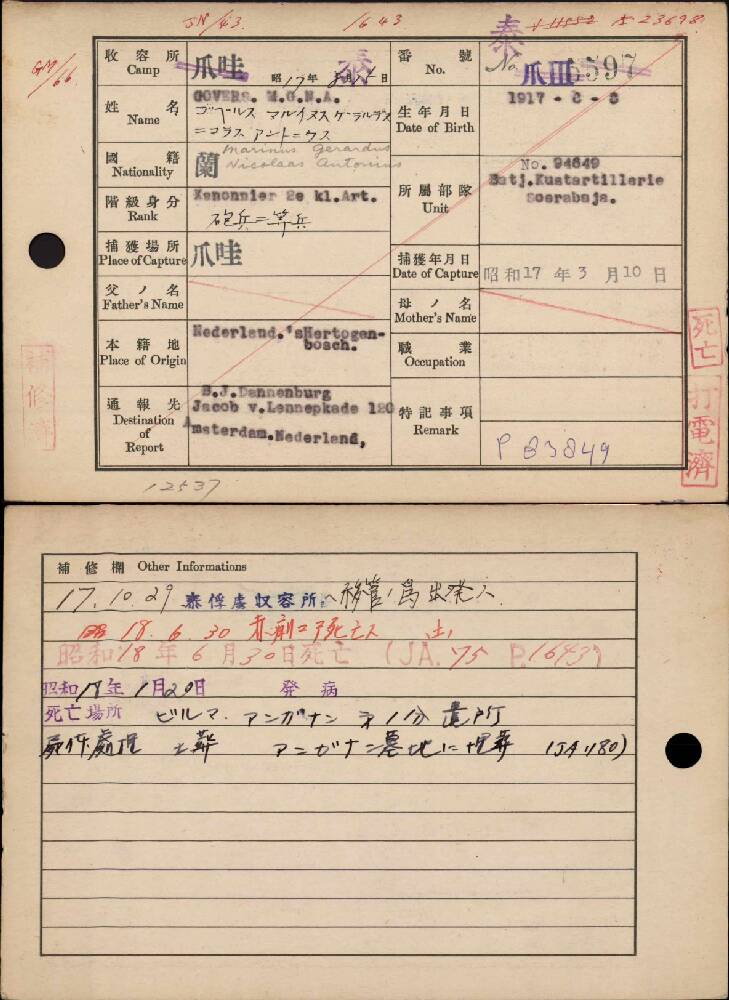 1643
泰
23698
收容所 Camp
爪哇
泰
昭 17年 8月15日
番號 No.
No. 爪III 5597
姓名 Name
GOVERS. M.G.N.A.
ゴベールス マルイヌス ゲラルデス
ニコラス アントニウス
生年月日 Date of Birth
1917 - 8 - 8
國籍 Nationality
蘭
Marinus Gerardus
Nicolaas Antonius
所屬部隊 Unit
No. 94649
Batj.Kustartillerie
Soerabaja.
階級身分 Rank
Kanonnier 2e kl.Art.
砲兵二等兵
捕獲場所 Place of Capture
爪哇
捕獲年月日 Date of Capture
昭和17年3月10日
父ノ名 Father's Name
母ノ名 Mother's Name
本籍地 Place of Origin
Nederland. 'sHertogen-
bosch.
職業 Occupation
通報先 Destination of Report
B.J.Dannenburg
Jacob v.Lennepkade 120
Amsterdam.Nederland,
特記事項 Remark
P 83849
死亡
打電濟
補修濟
12537
補修欄 Other Informations
17.10.29 泰俘虜収容所へ移管ノ為出発ス
昭 18.6.30 赤痢ニテ死亡ス
昭和18年6月30日死亡 (JA.75 P.1643)
昭和18年1月29日 発病
死亡場所 ビルマ. アンガナン 第1分遣所
屍体處理 土葬 アンガナン墓地に埋葬 (JA 180)